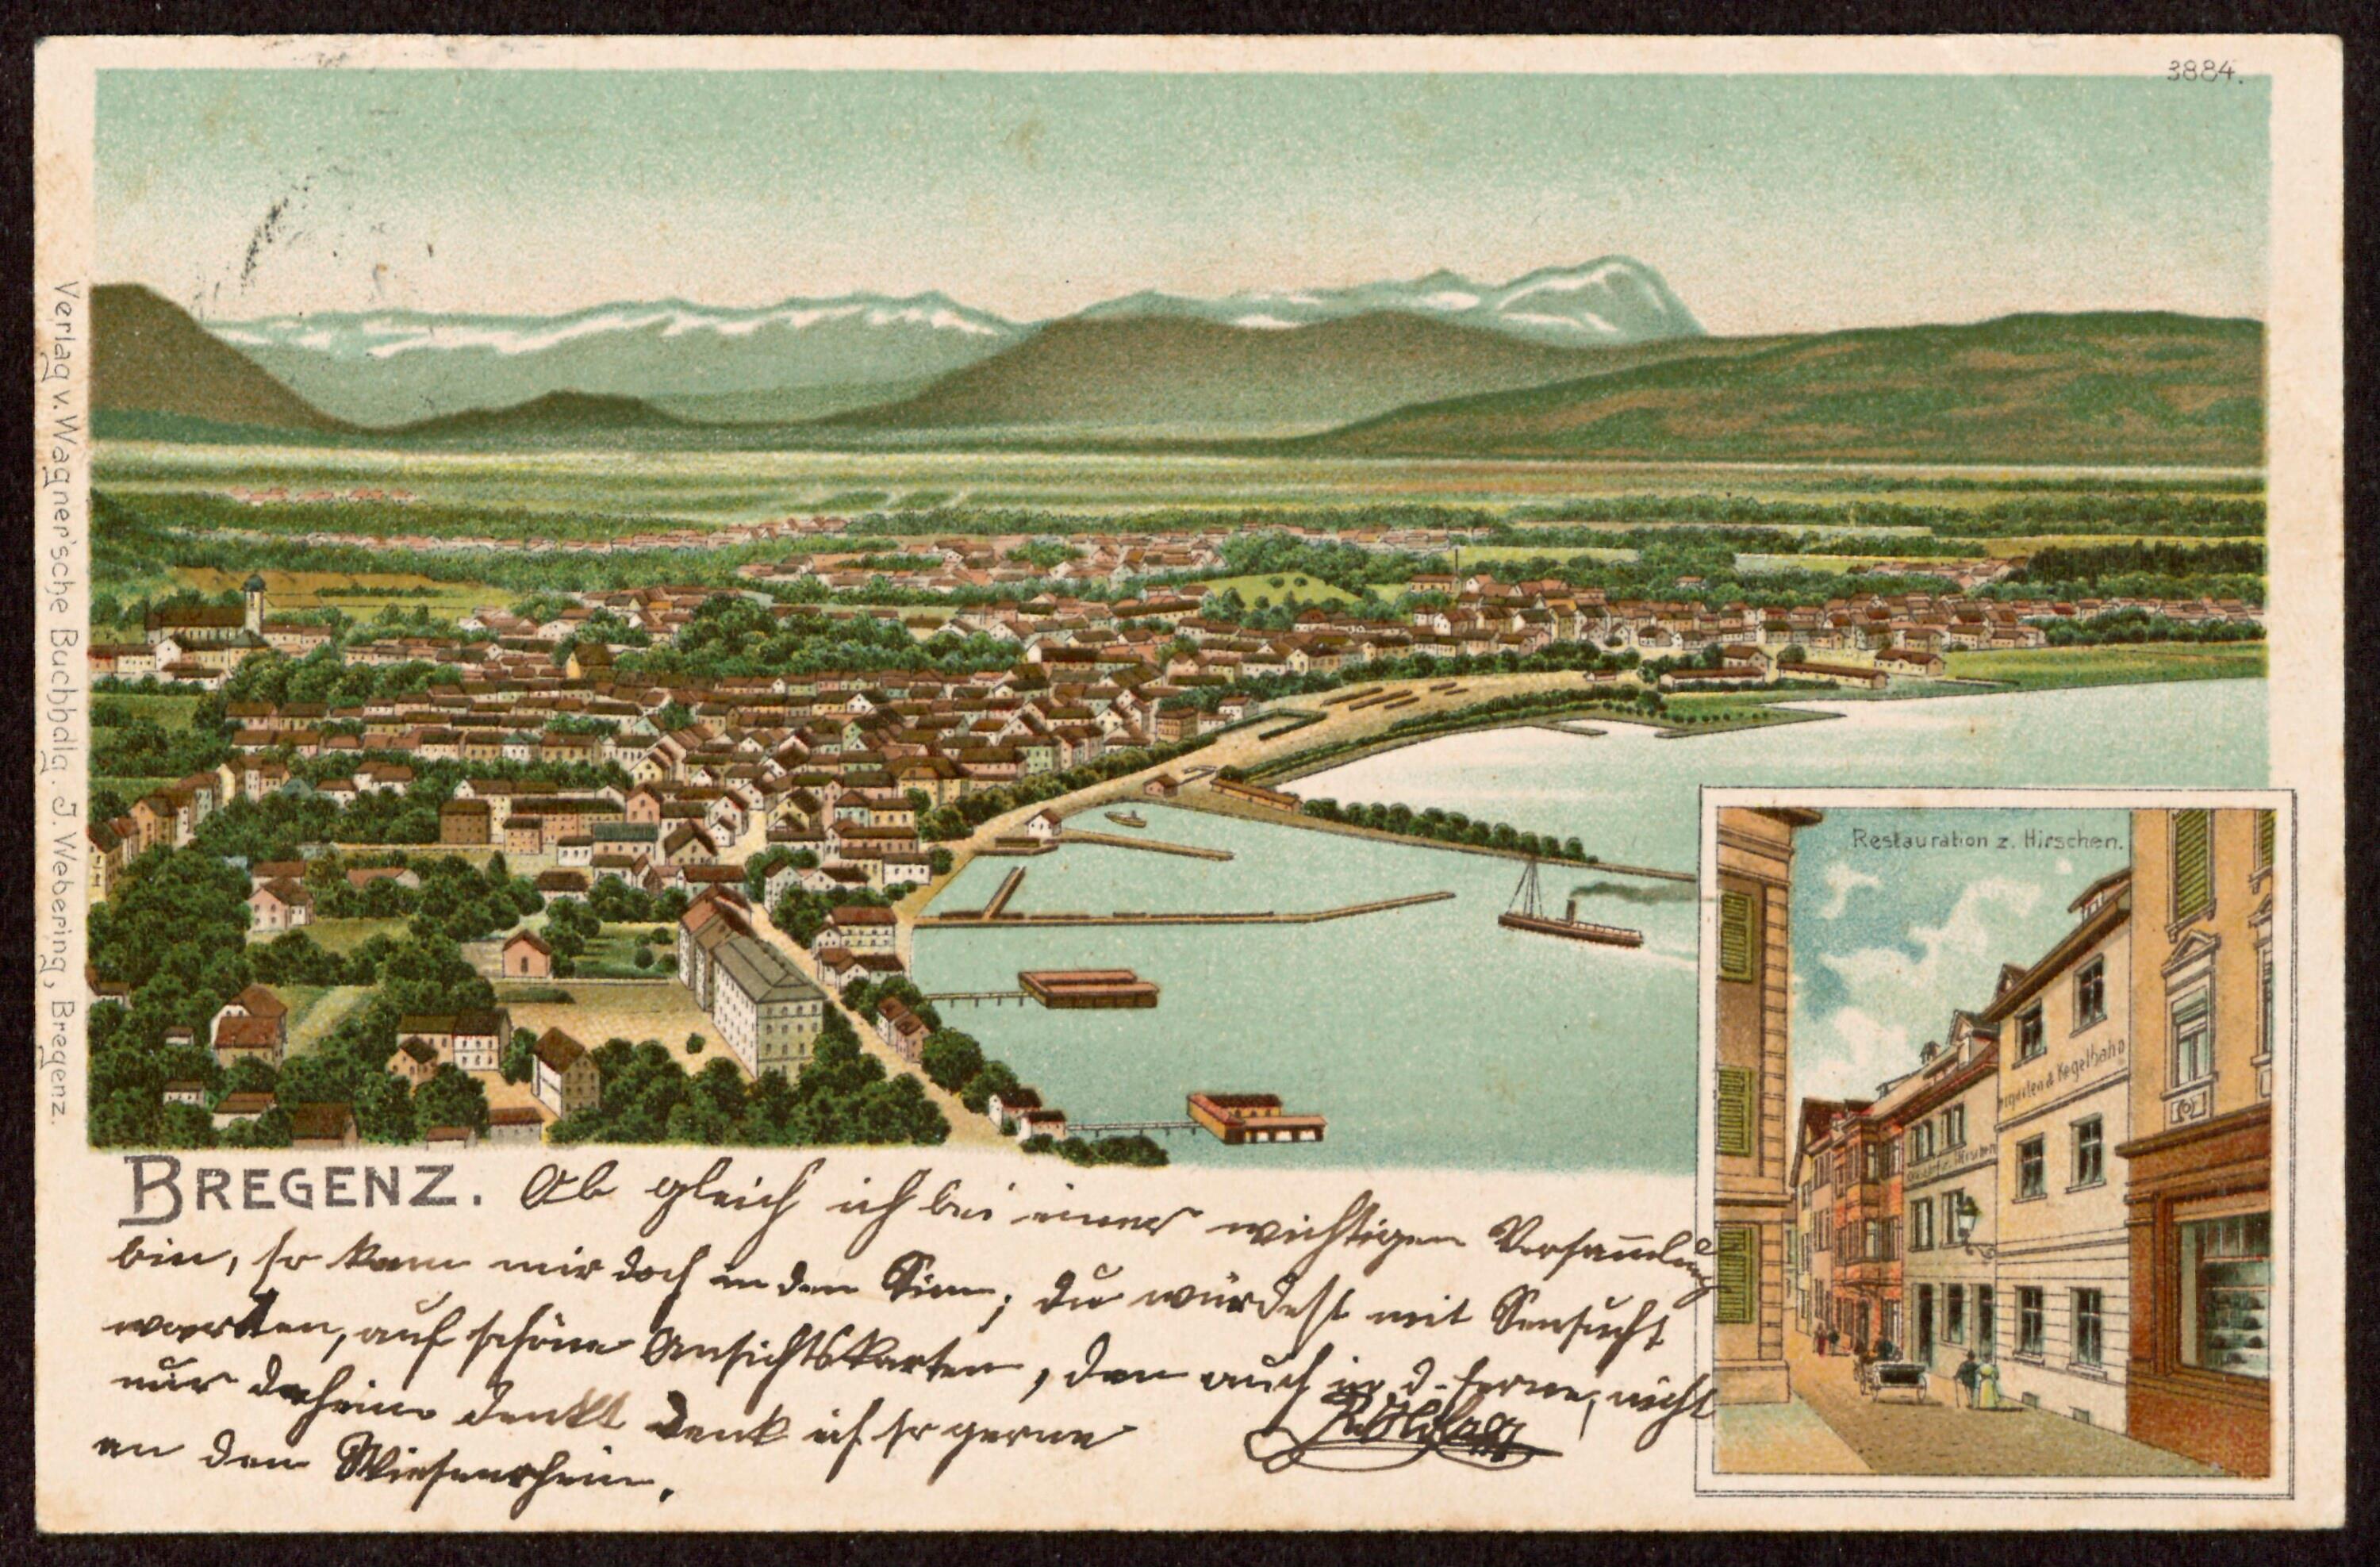 3884.
Verlag v. Wagner'sche Buchhdlg. J. Webering, Bregenz.
Restauration z. Hirschen.
& Kegelbahn
BREGENZ.
Ob gleich ich bei einer wichtigen Versammlung
bin, so kam mir doch in den Sinn, du würdest mit Sensucht
warten, auf schöne Ansichtskarten, den auch in d. ferne, nicht
nur daheim denkt denk ich so gerne
an den Wiesenrhein.